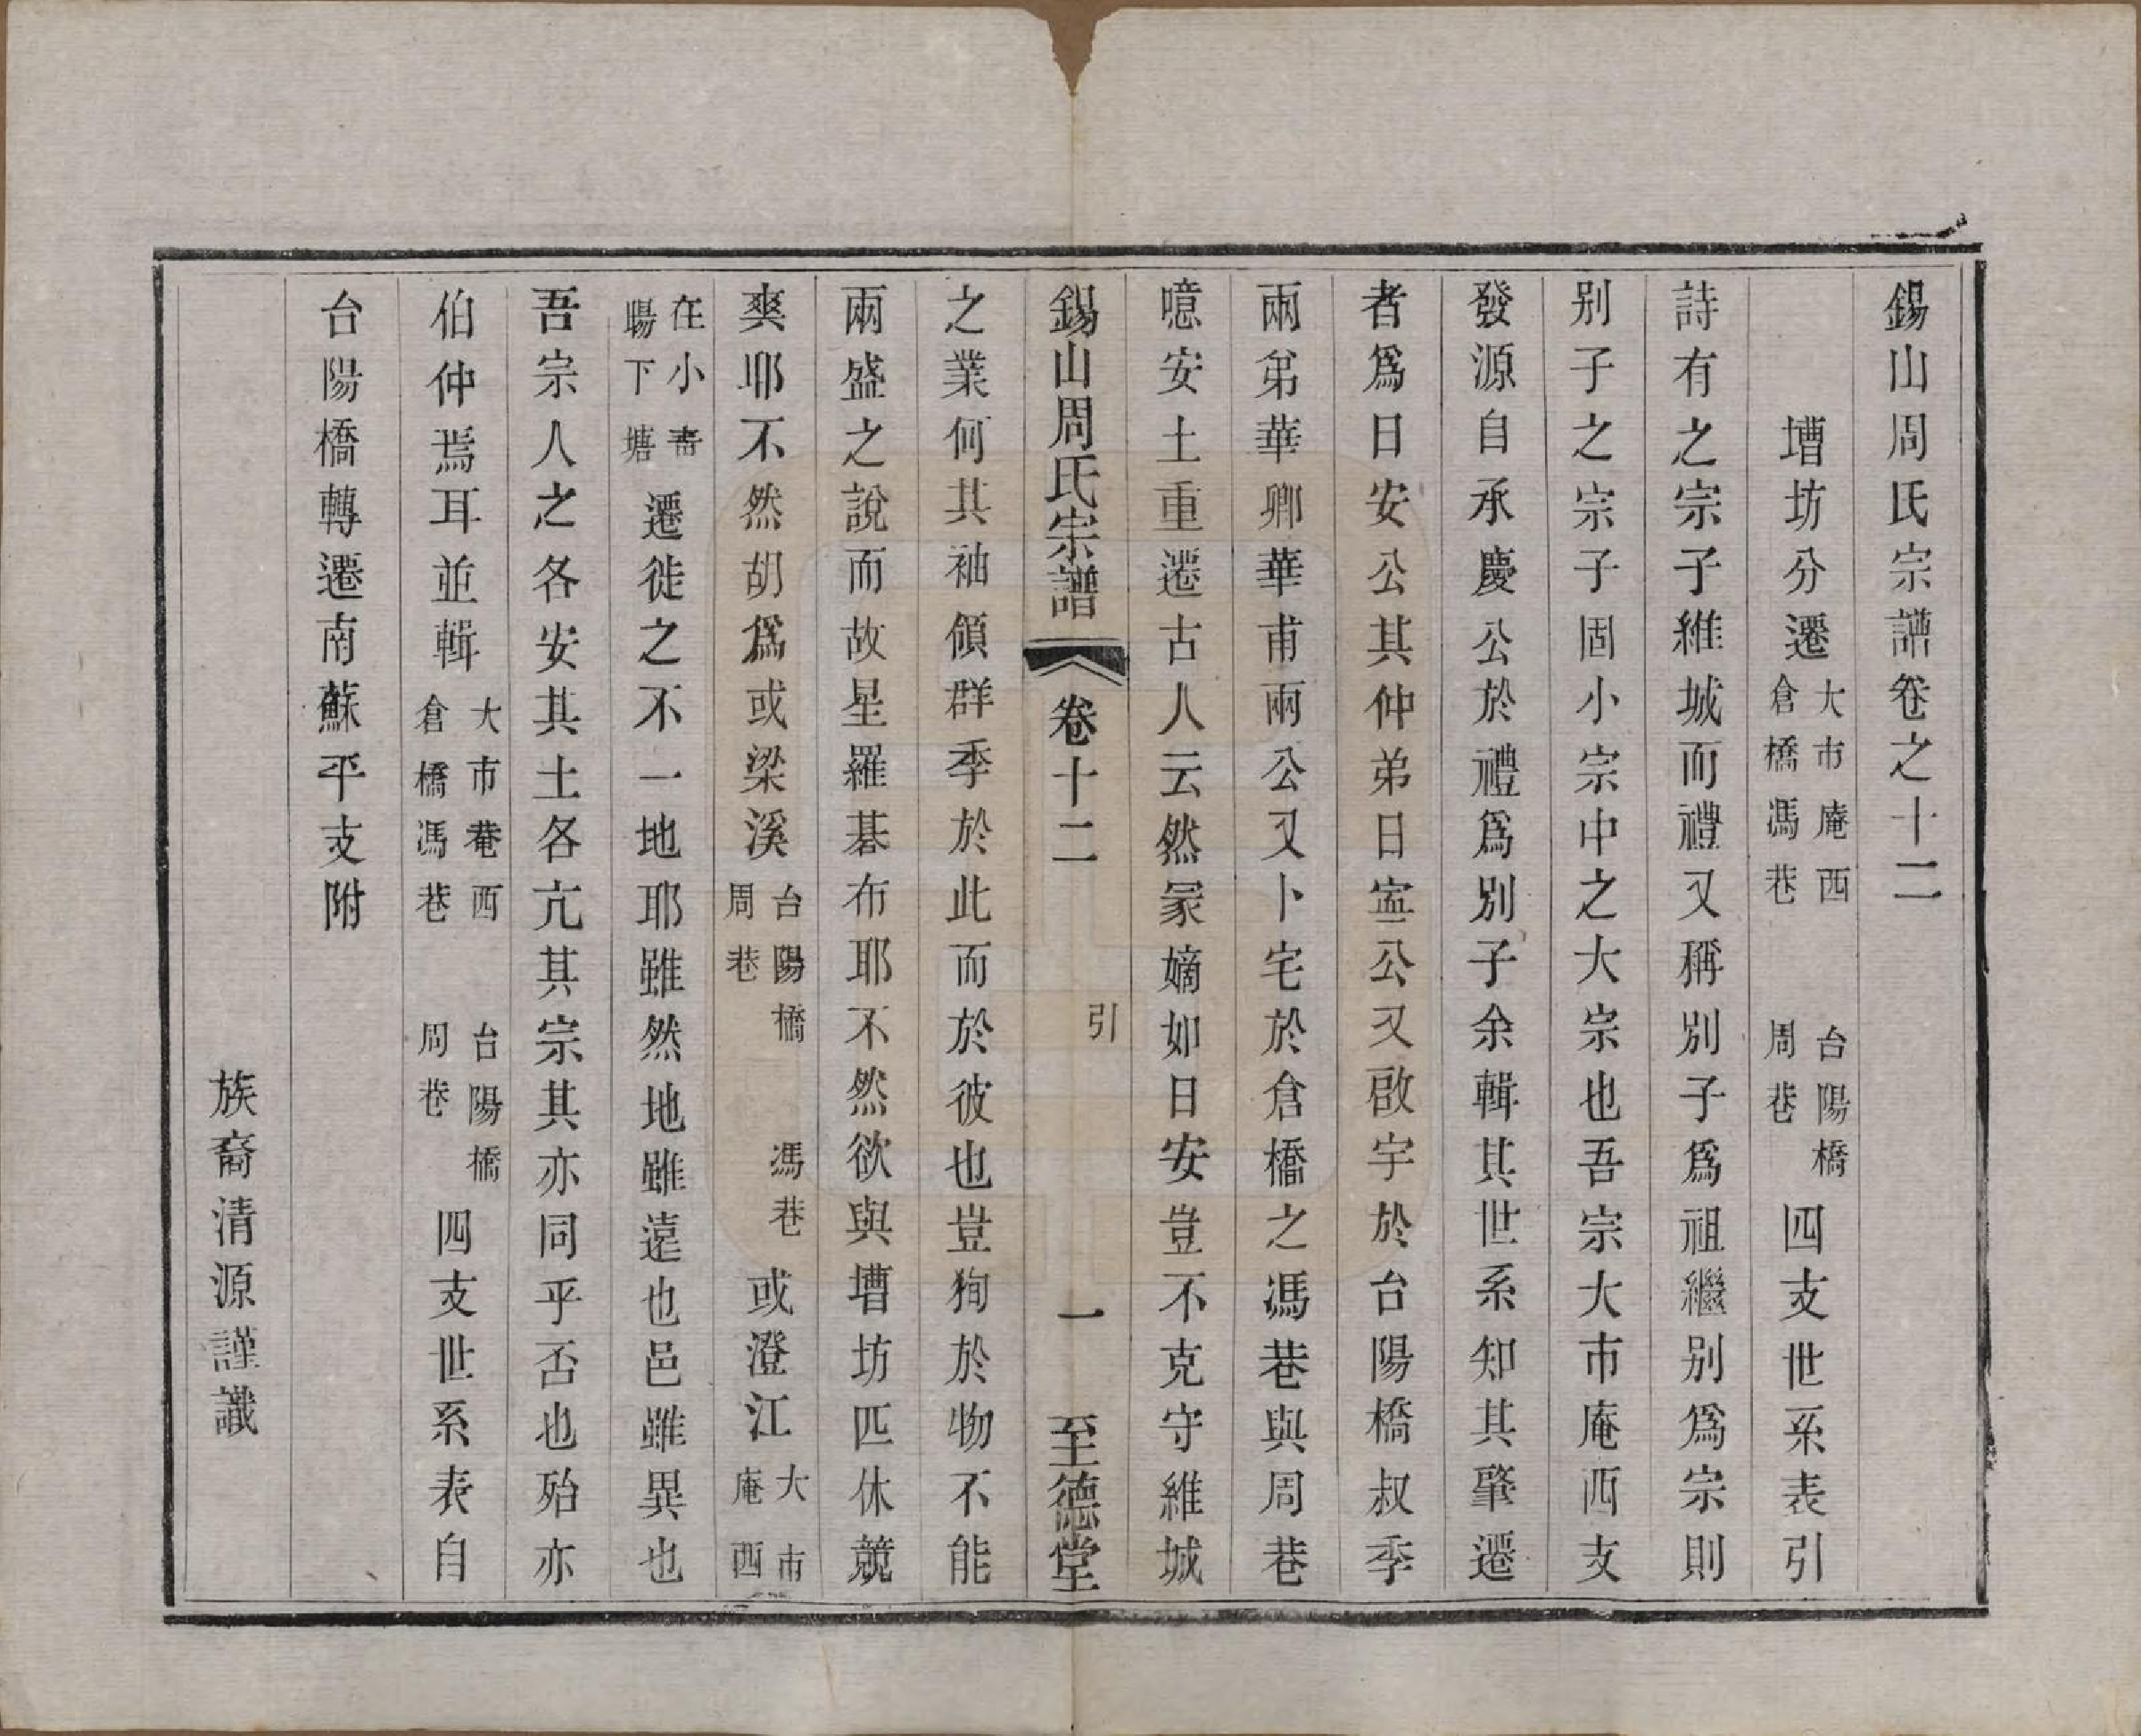 錫山周氏宗譜卷之十二
墰坊分遷大市庵西倉橋馮巷 台陽橋周巷四支世系表引
詩有之宗子維城而禮又稱別子爲祖繼別爲宗則
别子之宗子固小宗中之大宗也吾宗大市庵西支
發源自承慶公於禮爲別子余輯其世系知其肇遷
者爲日安公其仲弟日寍公又啟宇於台陽橋叔季
兩弟華卿華甫兩公又卜宅於倉橋之馮巷與周巷
噫安土重遷古人云然冢嫡如日安豈不克守維城
錫山周氏宗譜 卷十二 引 一 至德堂
之業何其袖領群季於此而於彼也豈狥於物不能
兩盛之說而故星羅碁布耶不然欲與墰坊匹休競
爽耶不然胡爲或梁溪台陽橋周巷 馮巷或澄江大市庵西
在小暘下塘遷徙之不一地耶雖然地雖遠也邑雖異也
吾宗人之各安其土各亢其宗其亦同乎否也殆亦
伯仲焉耳並輯大市菴西倉橋馮巷 台陽橋周巷四支世系表自
台陽橋轉遷南蘇平支附
族裔清源謹識